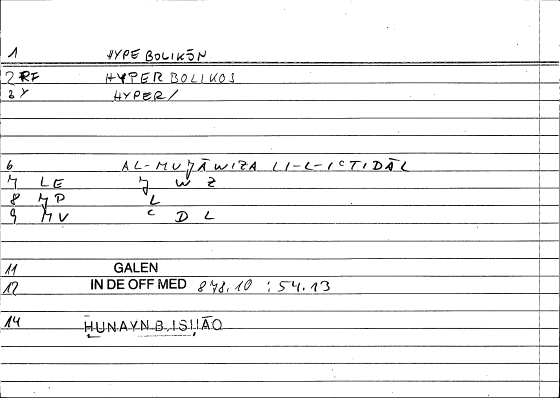 1 HYPEBOLIKŌN
2 RF HYPERBOLIKOS
3 Y HYPER/
6 AL-MUǦĀWIZA LI-L-ICTIDĀL
7 LE Ǧ W Z
8 ǦP L
9 MV C D L
11 GALEN
12 IN DE OFF MED 878.10 : 54.13
14 ḤUNAYN B. ISḤĀQ